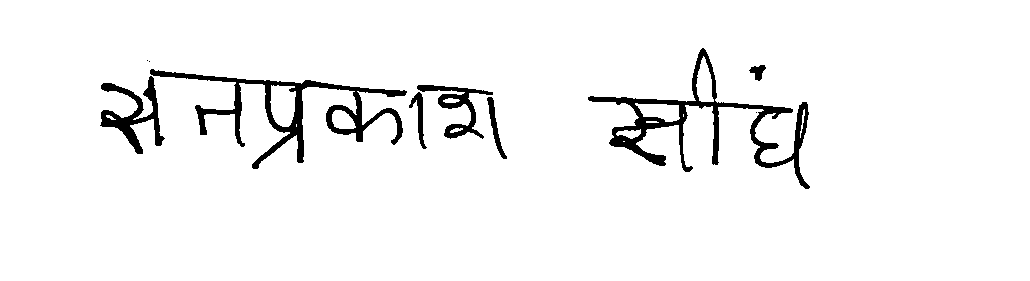 सतप्रकाश सींघ